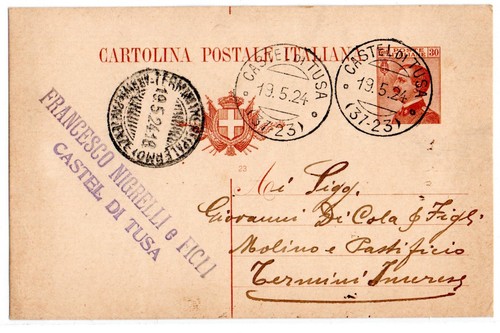 CARTOLINA POSTALE ITALIAN
30
CASTEL DI TUSA
19.5.24
(37-23)
CASTEL DI TUSA
19.5.24
(37-23)
19.5.24.18
(PALERMO)
FRANCESCO NIGRELLI e FIGLI
CASTEL DI TUSA
23
Sigg.
Giovanni Di Cola & Figli
Molino e Pastificio
Termini Imerese